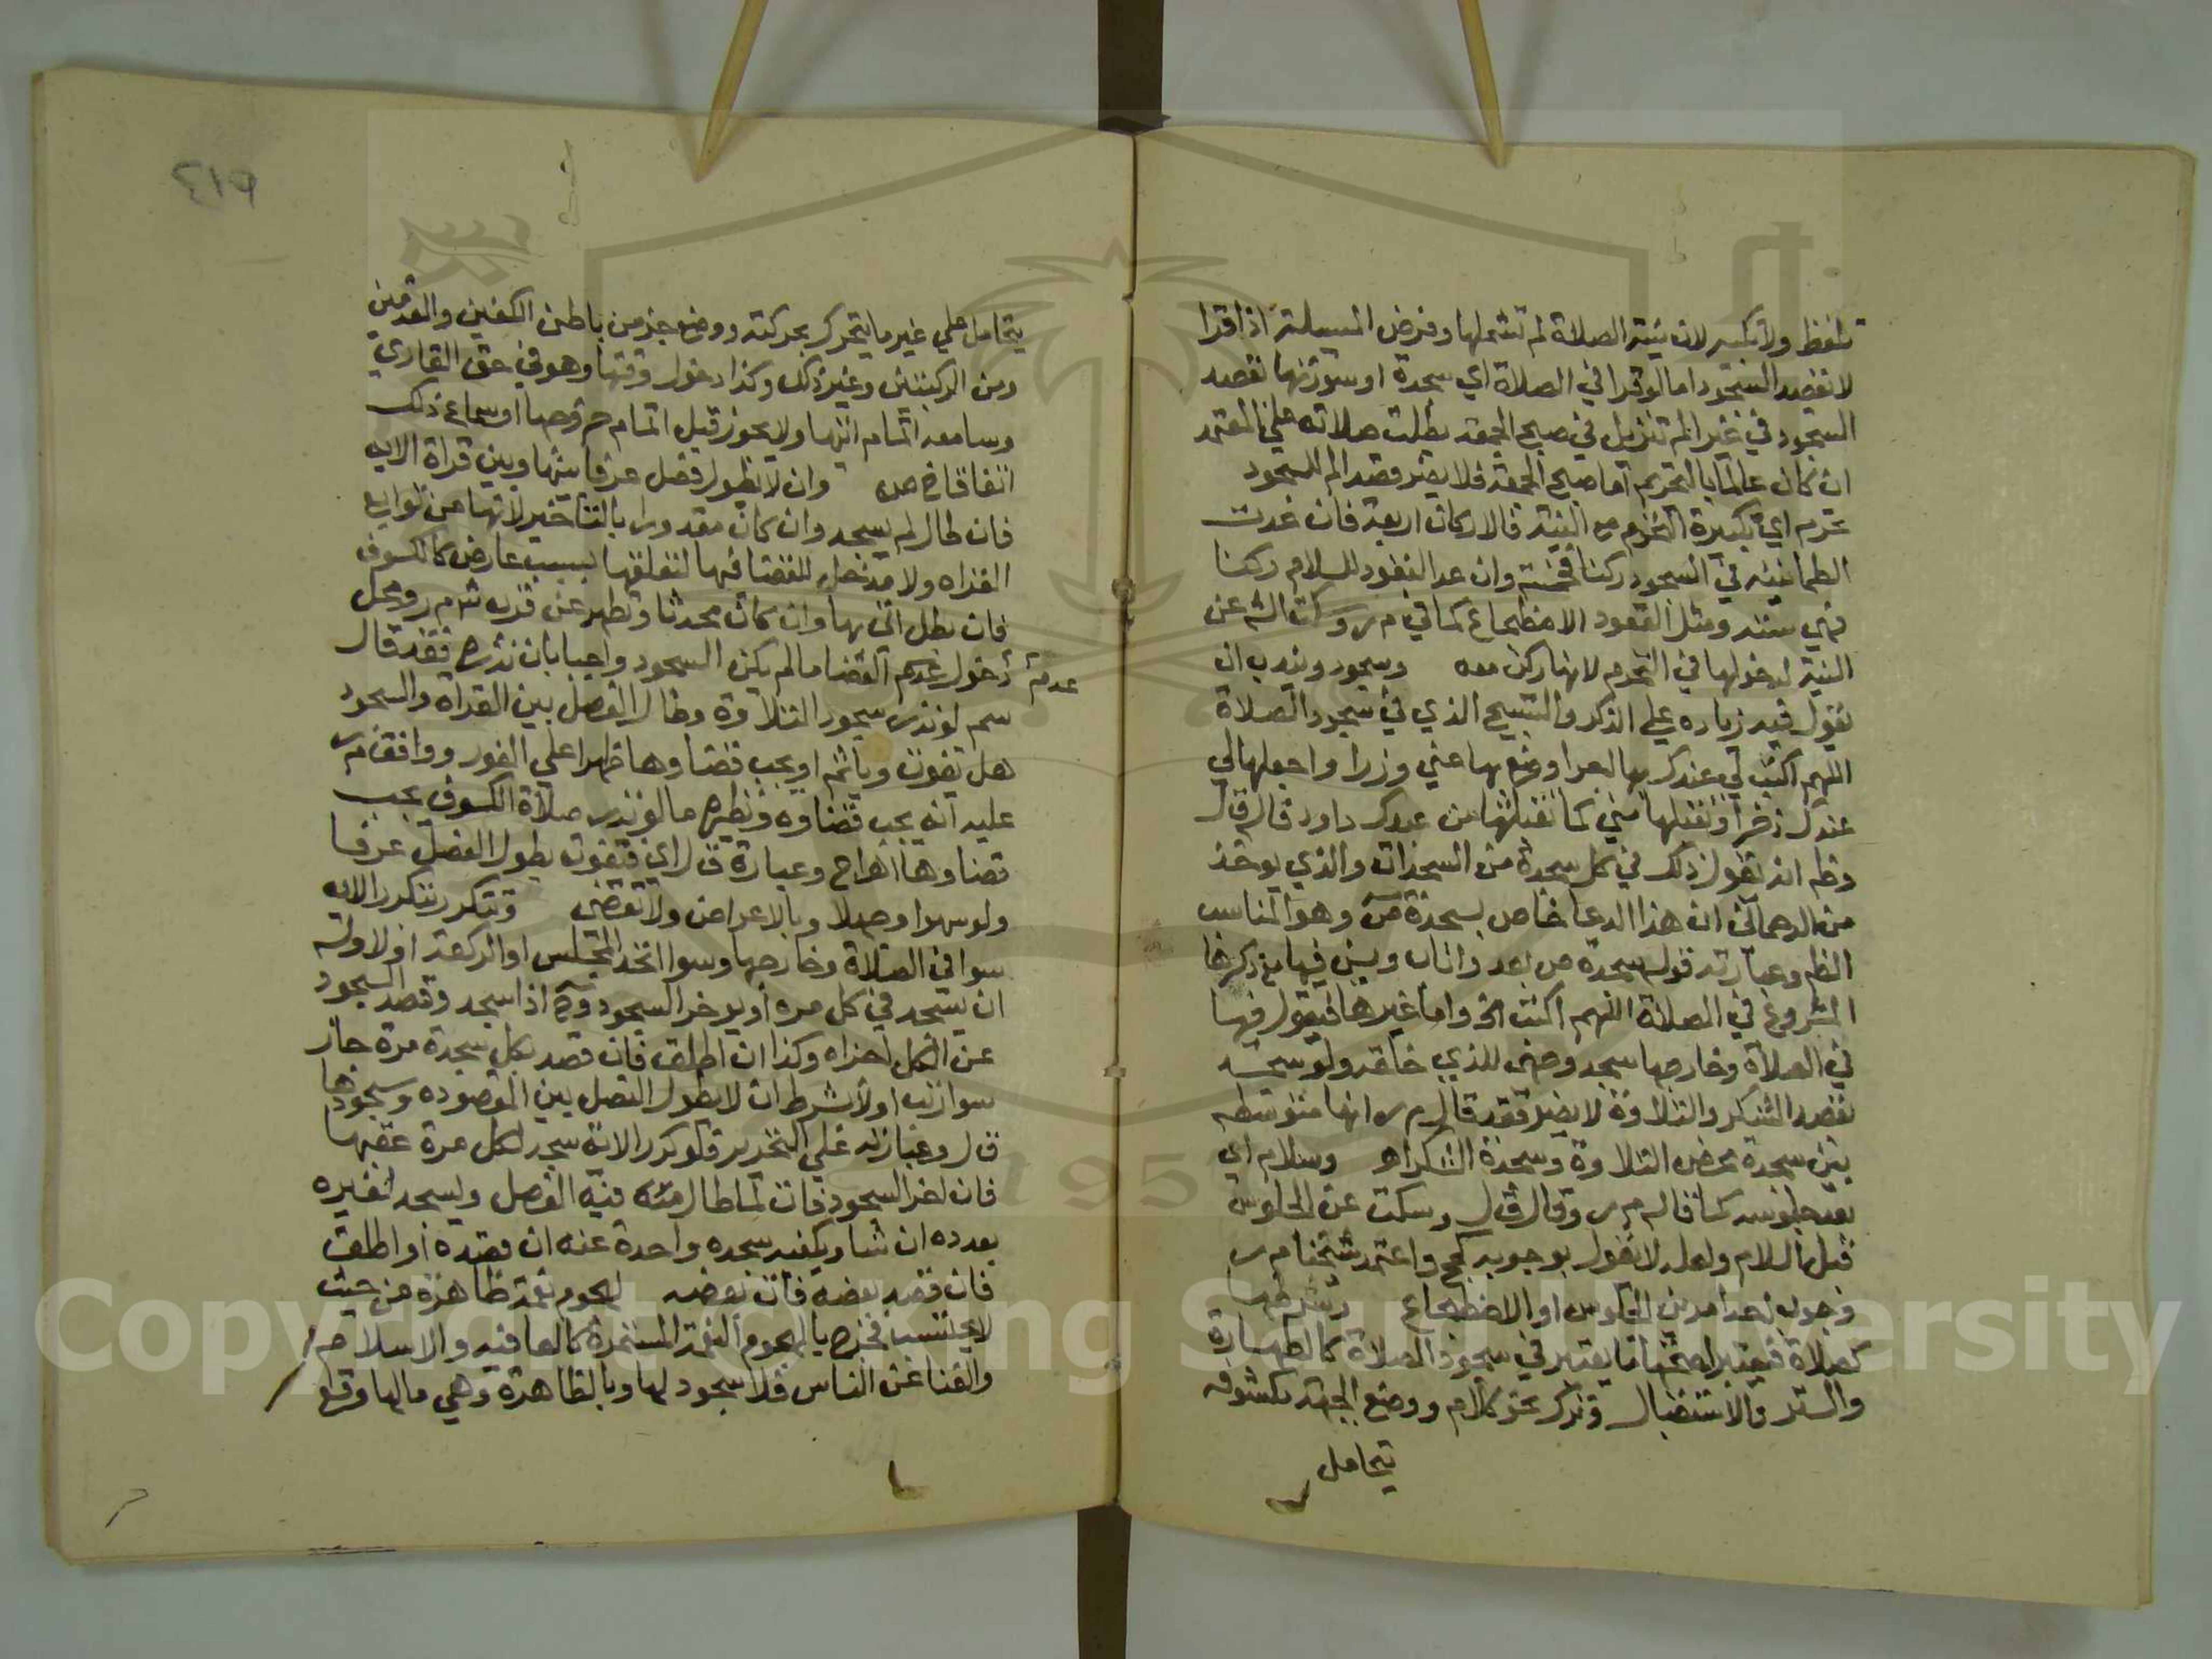 تلفظ ولا تكبير لان نية الصلاة لم تشملها وفرض المسيلة اذا قرا
لا بقصد السجود اما لو قرا في الصلاة اي سجدة او سورتها بقصد
السجود في غير الم تنزيل في صبح الجمعة بطلت صلاته علي المعتمد
ان كان عالما بالتحريم اما صبح الجمعة فلا يضر قصد الم للسجود
تحرم اي تكبيرة التحرم مع النية فالاركان اربعة فان عدت
الطمانينة في السجود ركنا فخمسة وان عد القعود للسلام ركنا
فهي ستة ومثل القعود الاضطجاع كما في م ر وسكت الش عن
النية لدخولها في التحرم لانها ركن معه وسجود ويندب ان
يقول فيه زياده علي الذكر والتسبيح الذي في سجود الصلاة
اللهم اكتب لي عندك بها اجرا وضع بها عني وزرا واجعلها لي
عندك ذخرا وتقبلها مني كما تقبلتها من عبدك داود قال ق ل
وظ انه يقول ذلك في كل سجدة من السجدات والذي يوخذ
من الرحماني ان هذا الدعا خاص بسجدة ص وهو المناسب
الظ وعبارته قوله سجدة ص بعد واناب ويسن فيها مع ذكرها
المشروع في الصلاة اللهم اكتب الخ واما غيرها فيقول فيها
في الصلاة وخارجها سجد وجهي للذي خلقه ولو سجد
بقصد الشكر والتلاوة لا يضر فقد قال م ر انها متوسطه
بين سجدة محض التلاوة وسجدة الشكر اه وسلام اي
بعد جلوسه كما قاله م ر وقال ق ل وسكت عن الجلوس
قبل السلام ولعله لا يقول بوجوبه كحج واعتمد شيخنا م ر
وجوب احد امرين الجلوس او الاضطجاع وشرطها
كصلاة فيعتبر لصحتها ما يعتبر في سجود الصلاة كالطهارة
والستر والاستقبال وترك نحو كلام ووضع الجبهة مكشوفه
يتحامل
٤١٩
يتحامل علي غير ما يتحرك بحركته ووضع جزء من باطن الكفين والقدمين
ومن الركبتين وغير ذلك وكذا دخول وقتها وهو في حق القاري
وسامعه اتمام ايتها ولا يجوز قبل اتمام حروفها او سماع ذلك
اتفاقا وان لا يطول فصل عرفا بينها وبين قراة الايه
فان طال لم يسجد وان كان معذورا بالتاخير لانها من توابع
القراه ولا مدخل للقضا فيها لتعلقها بسبب عارض كالكسوف
فان لم يطل اتي بها وان كان محدثا وتطهر عن قرب ش م ر ومحل
عدم دخول القضا ما لم يكن السجود واجبا بان نذره فقد قال
سم لو نذر سجود التلاوة وطال الفصل بين القراة والسجود
هل تفوت وياثم او يجب قضاوها ظهرا علي الفور ووافق م ر
عليه انه يجب قضاوه ونظيره ما لو نذر صلاة الكسوف يجب
قضاوها اه اج وعبارة ق ل اي فتفوت بطول الفصل عرفا
ولو سهوا وجهلا وبالاعراض ولا تقضي وتتكرر بتكرر الايه
سوا في الصلاة وخارجها وسوا اتحد المجلس او الركعة او لا وله
ان يسجد في كل مره او يوخر السجود وح اذا سجد وقصد السجود
عن الكل اجزاه وكذا ان اطلق فان قصد بكل سجدة مرة جاز
سوا رتب او لا بشرط ان لا يطول الفصل بين المقصوده وسجودها
ق ل وعبارته علي التحرير فلو كرر الاية سجد لكل مرة عقبها
فان اخر السجود فات لما طال منه فيه الفصل ويسجد لغيره
بعدده ان شا ويكفيه سجده واحدة عنه ان قصده او اطلق
فان قصد بعضه فات بعضه لهجوم نعمة ظاهرة من حيث
لا يحتسب فخرج بالهجوم النعمة المستمرة كالعافيه والاسلام
والغنا عن الناس فلا سجود لها وبالظاهرة وهي ما لها وقع